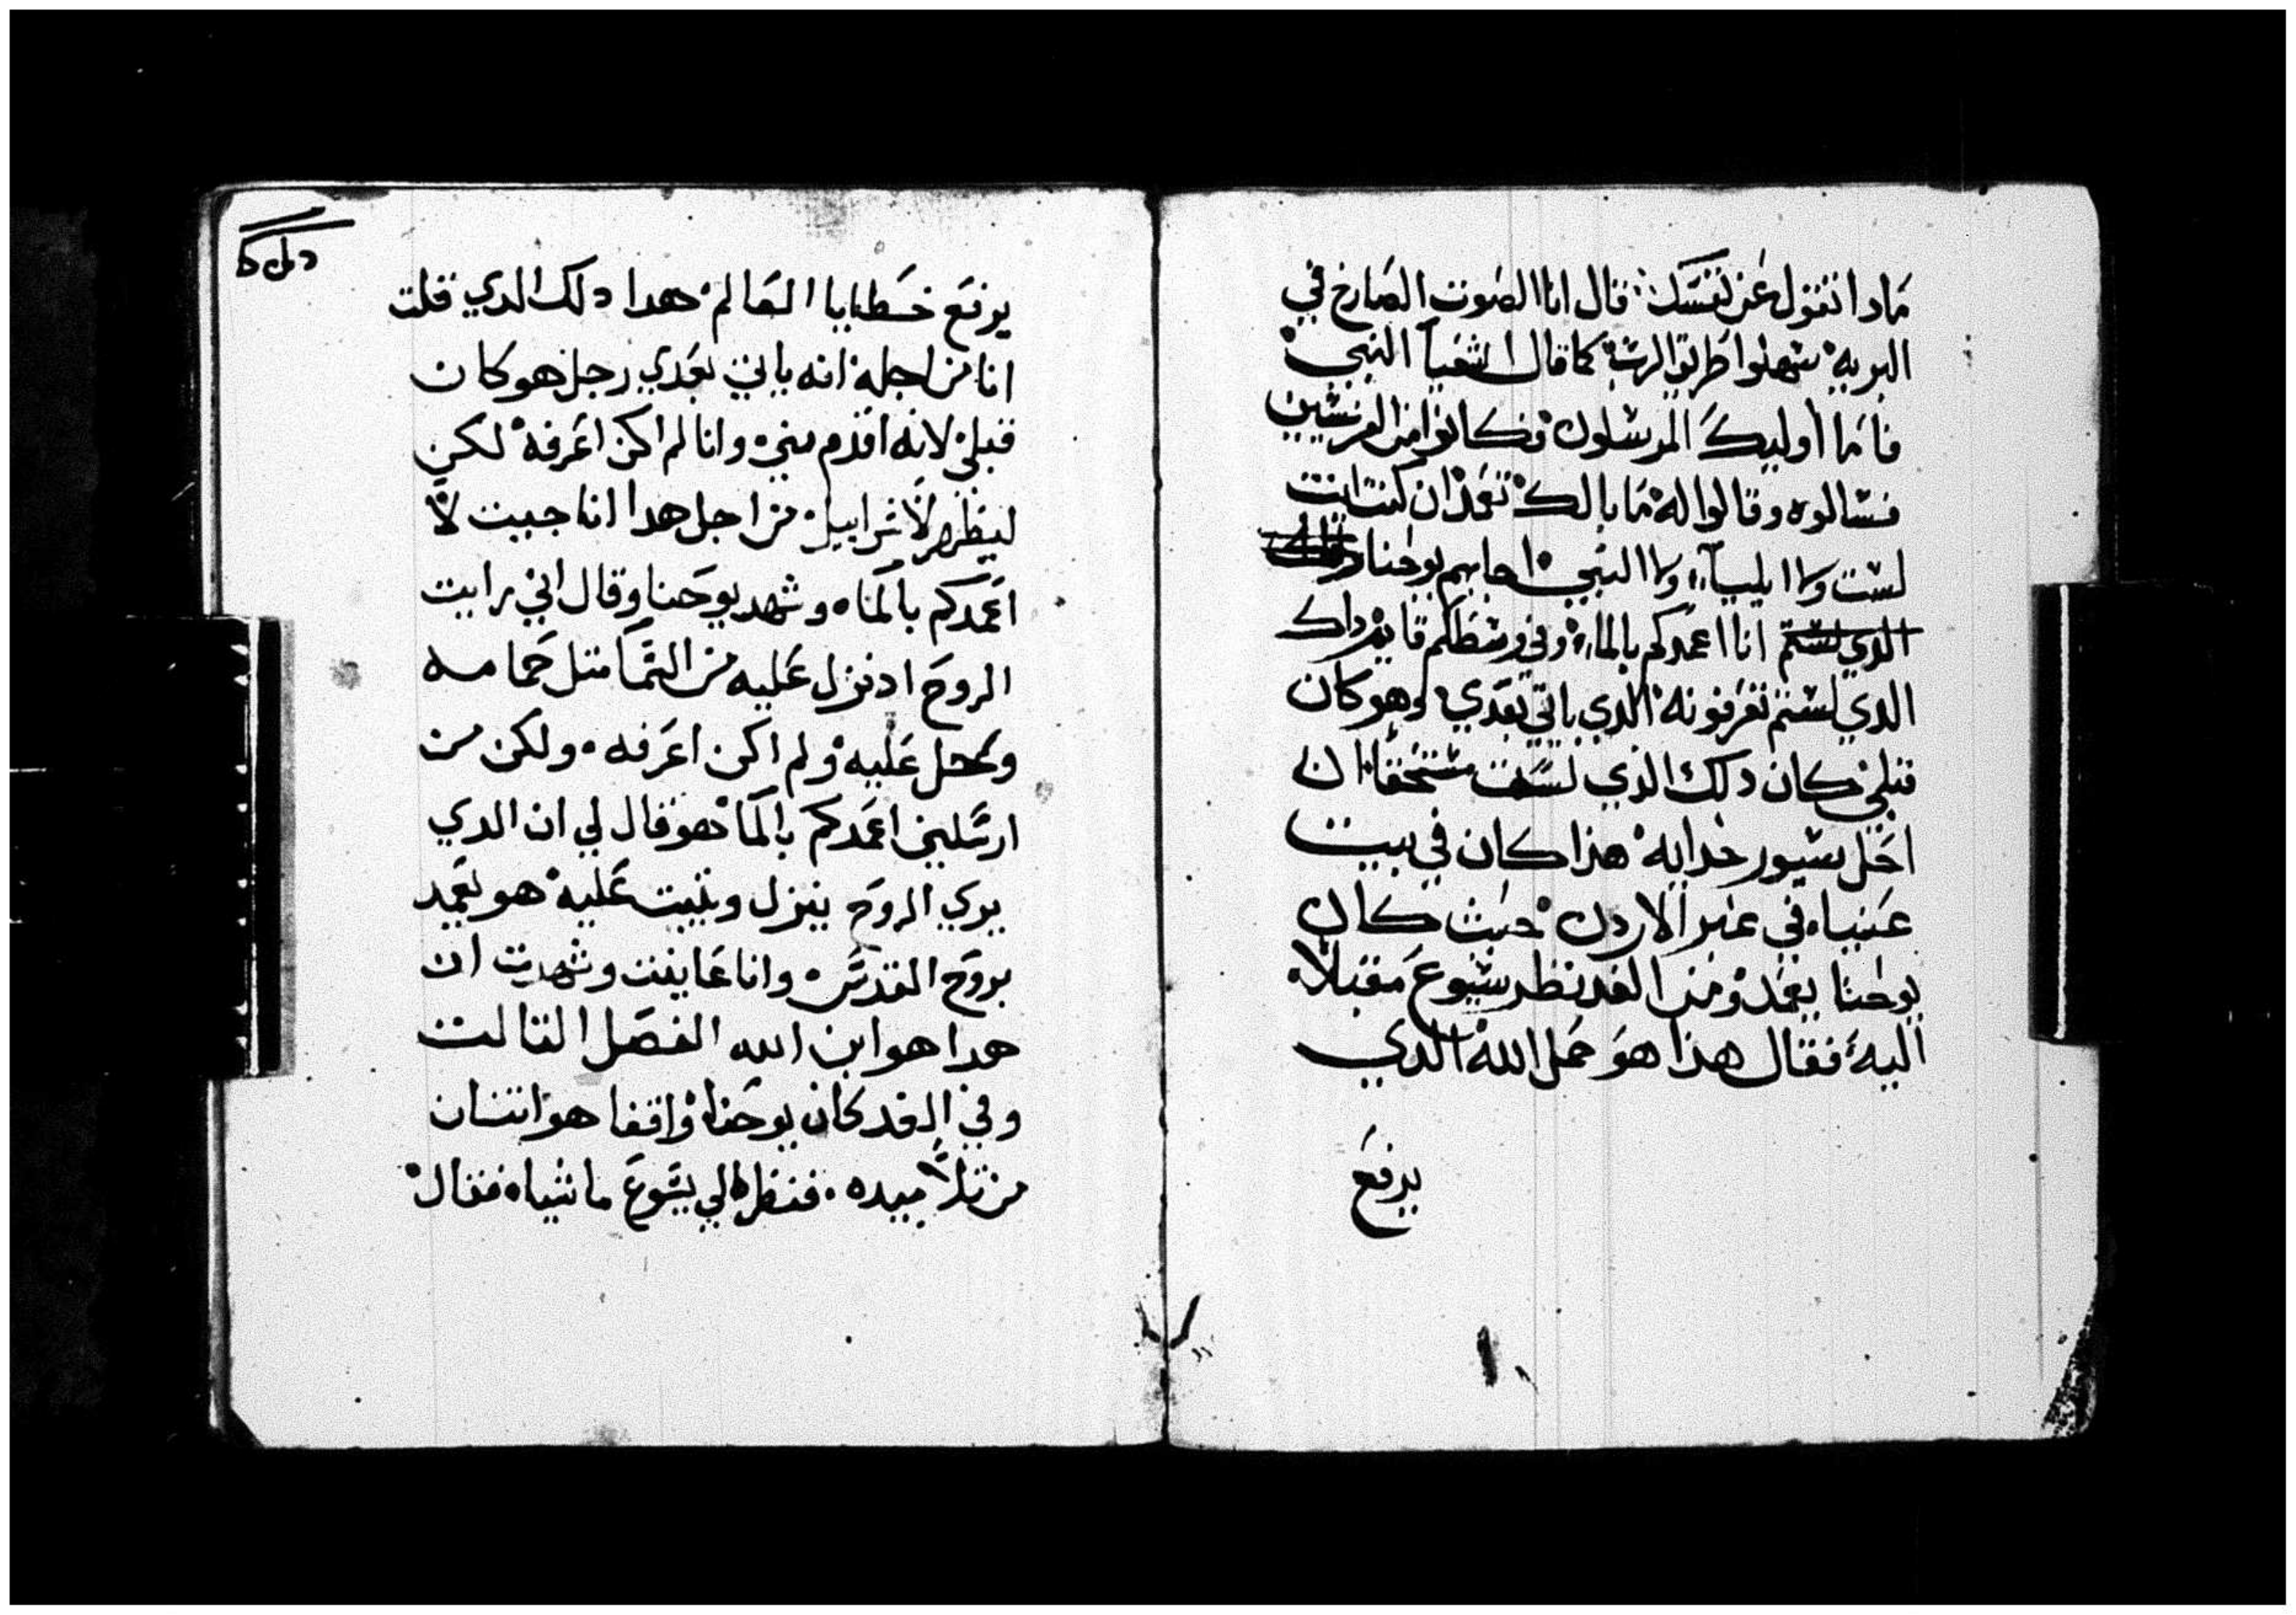 مادا تقول عن نفسك قال انا الصوت الصارخ في
البريه سهلوا طريق الرب كما قال اشعيا النبي
فاما أوليك المرسلون فكانوا من الفريسين
فسالوه وقالوا له ما بالك تعمد ان كنت انت
لست ولا ايليا ولا النبي اجابهم يوحنا
الدي لستم انا اعمدكم بالماء وفي وسطكم قايم داك
الدي لستم تعرفونه الدي ياتي بعدي وهو كان
قبلي كان دلك الذي لست مستحقا ان
احل سيور حدايه هذا كان في بيت
عنيا في عبر الاردن حيث كان
يوحنا يعمد ومن الغد نظر يسوع مقبلا
اليه فقال هذا هو حمل الله الدي
يرفع
يرفع خطايا العالم هدا دلك الدي قلت
انا من اجله انه ياتي بعدي رجل هو كان
قبلي لانه اقدم مني وانا لم اكن اعرفه لكن
ليظهر لاسراييل من اجل هدا انا جيت لا
اعمدكم بالماء وشهد يوحنا وقال اني رايت
الروح اد نزل عليه من السما متل حمامه
وحل عليه ولم اكن اعرفه ولكن من
ارسلني اعمدكم بالما هو قال لي ان الدي
يري الروح ينزل ويثبت عليه هو يعمد
بروح القدس وانا عاينت وشهدت ان
هدا هو ابن الله الفصل التالت
وفي الغد كان يوحنا واقفا هو اتنان
من تلاميده فنظر الي يسوع ماشيا فقال